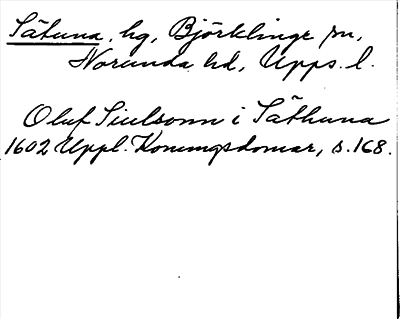 Sätuna, hg, Björklinge sn,
Norunda hd, Upps. l.
Oluf Siulsonn i Säthuna
1602 Uppl. Konungsdomar, s. 168.